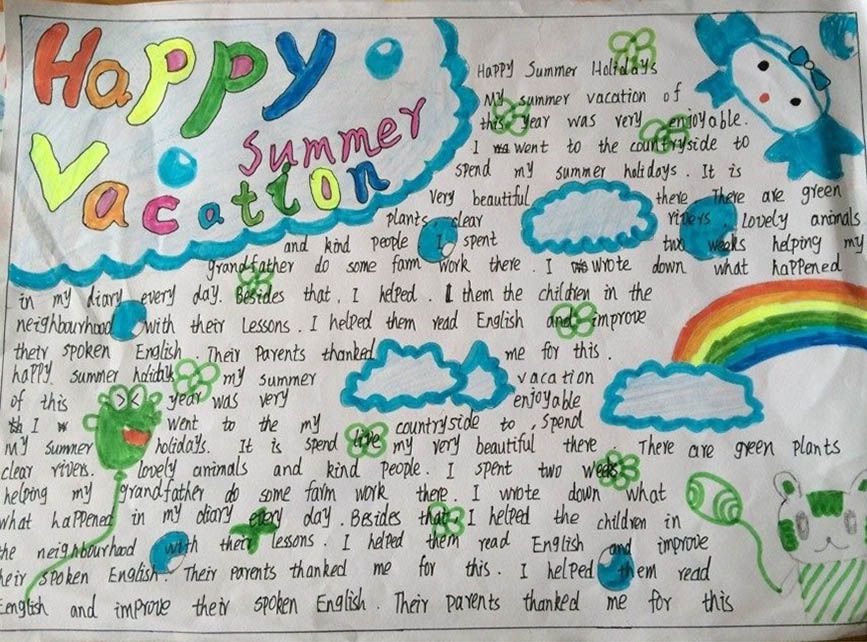 Happy
Summer
Vacation
Happy Summer Holidays
My summer vacation of
this year was very enjoyable.
I went to the countryside to
spend my summer holidays. It is
very beautiful there. There are green
plants, clear rivers. Lovely animals
and kind people I spent two weeks helping my
grandfather do some farm work there. I wrote down what happened
in my diary every day. Besides that, I helped. I them the children in the
neighbourhood with their Lessons. I helped them read English and improve
their spoken English. Their Parents thanked me for this.
happy summer holiday my summer vacation
of this year was very enjoyable
I went to the my countryside to, spend
My summer holidays. It is spend live my very beautiful there. There are green plants
clear rivers. lovely animals and kind people. I spent two weeks
helping my grandfather do some farm work there. I wrote down what
what happened in my diary every day. Besides that, I helped the children in
the neighbourhood with their lessons. I helped them read English and improve
heir spoken English. Their Parents thanked me for this. I helped them read
English and improve their spoken English. Their parents thanked me for this